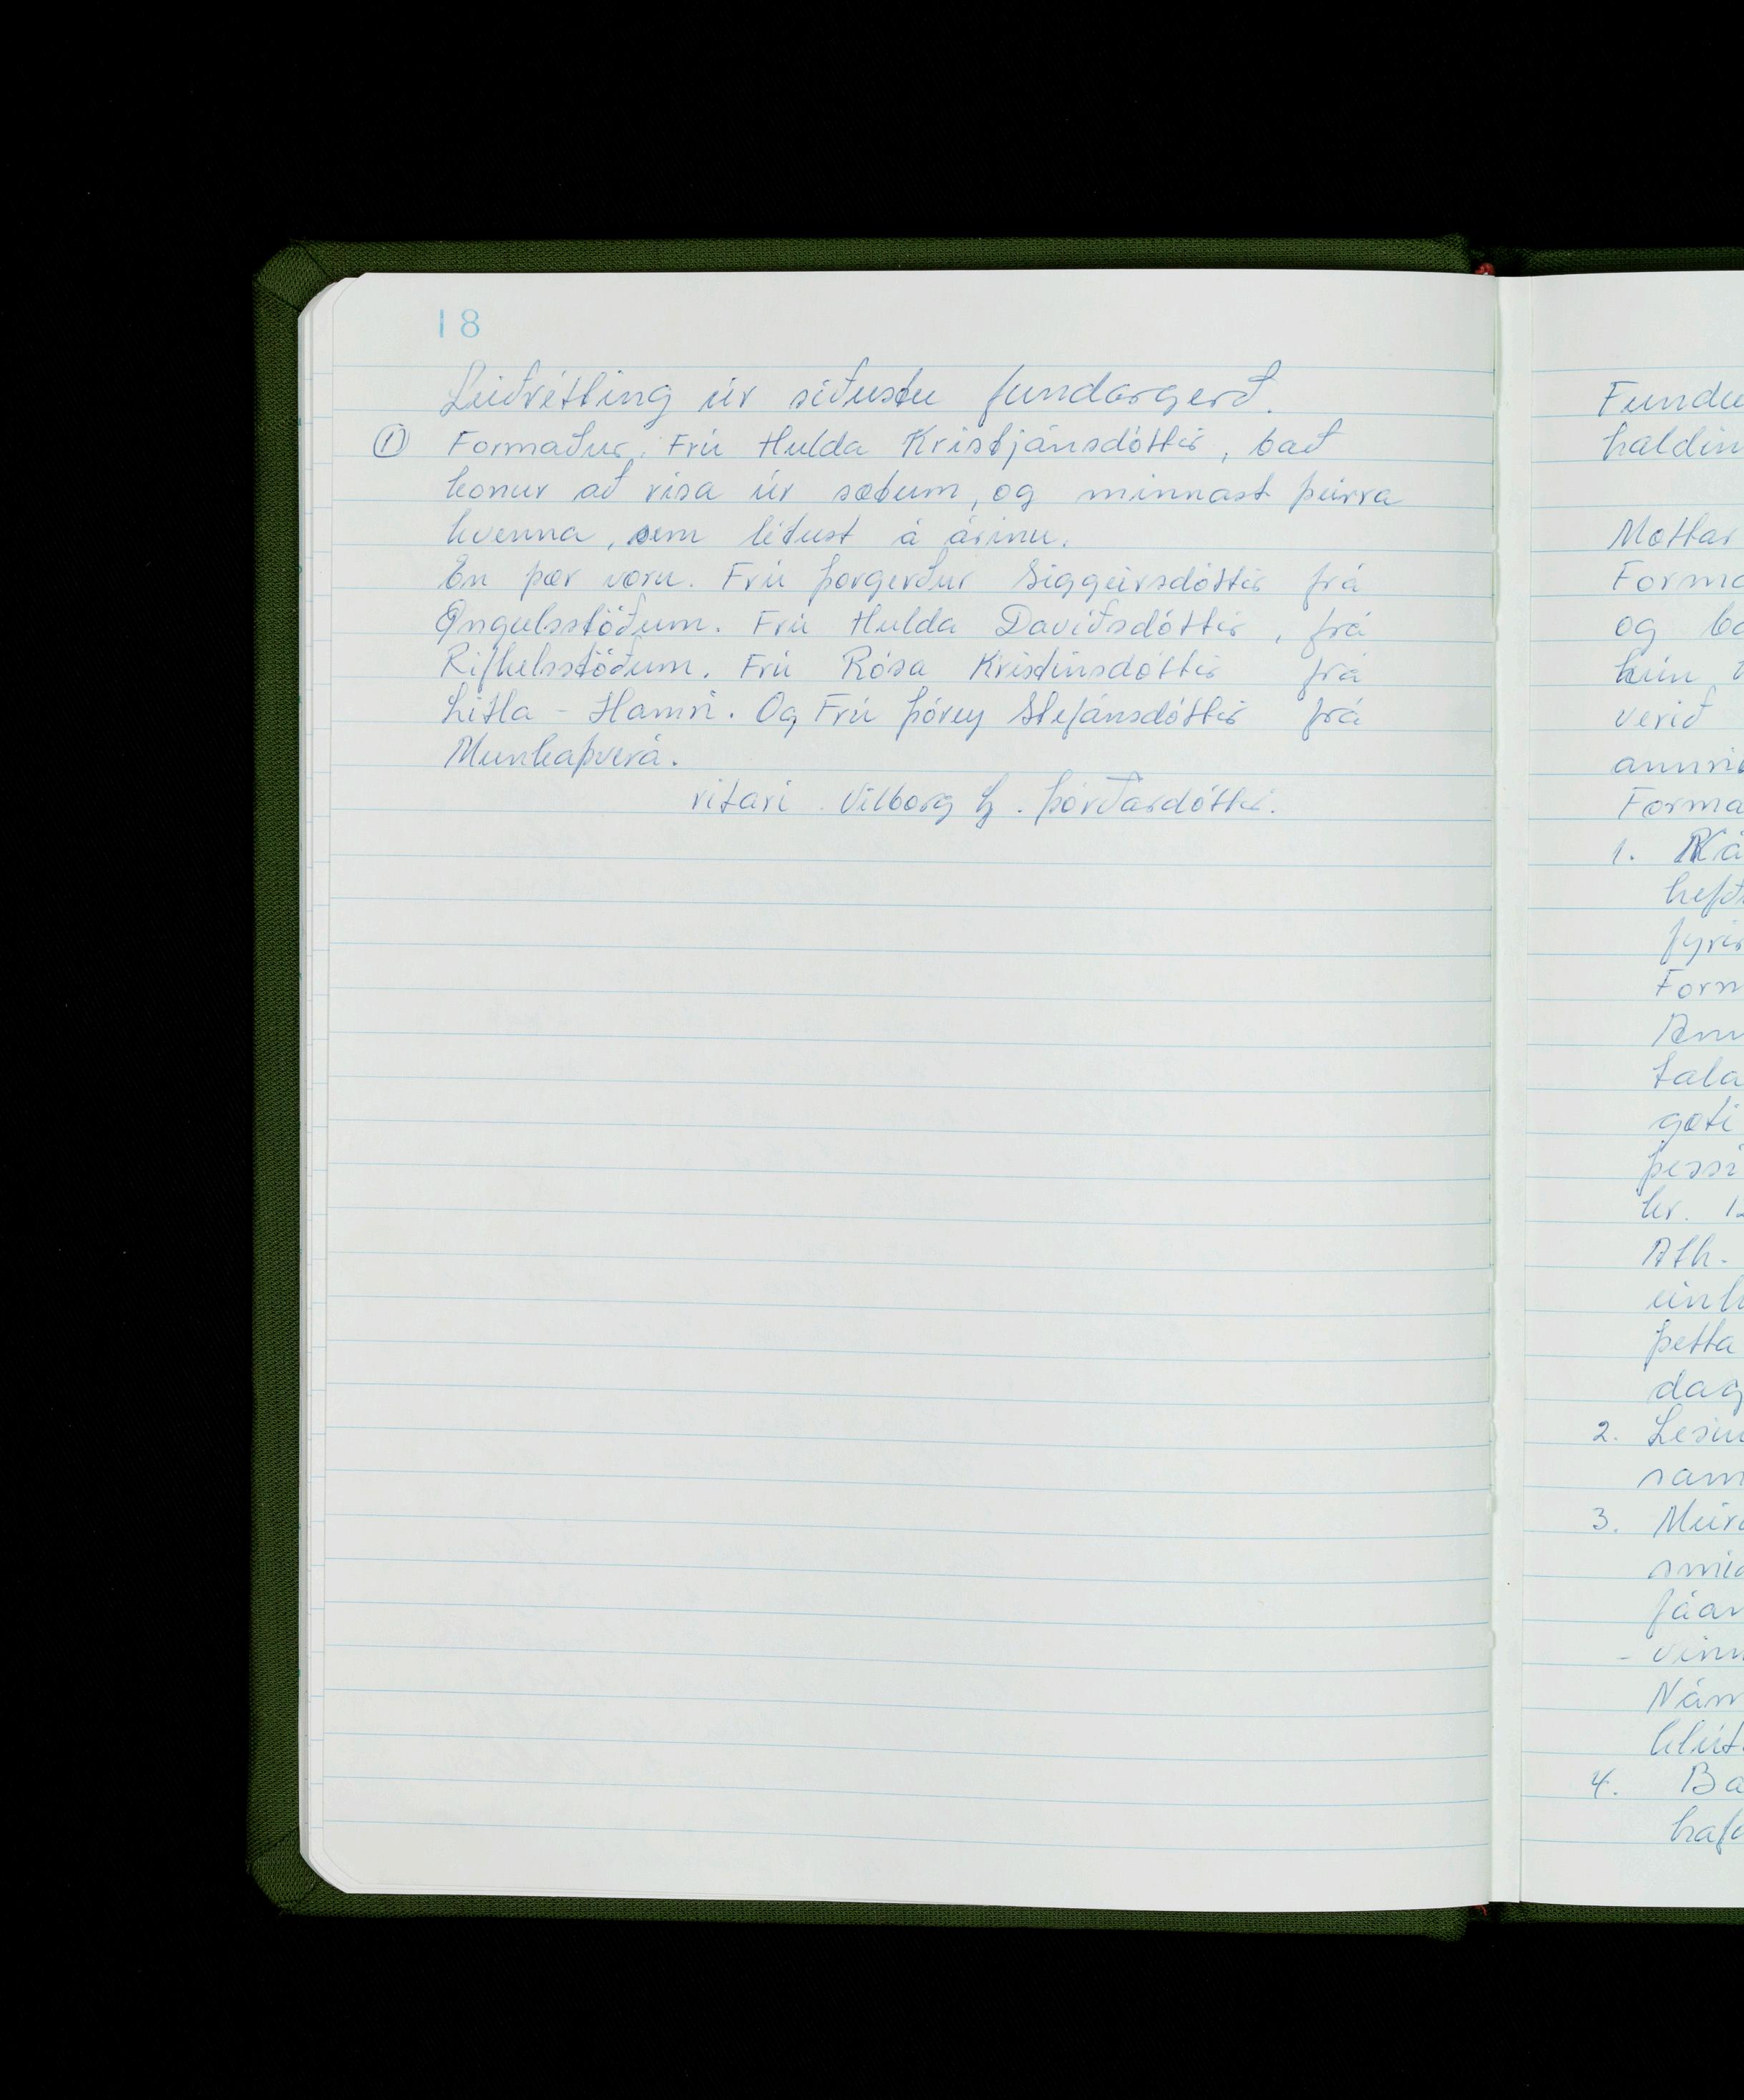 18
Leiðrétting úr síðustu fundargerð.
① Formaður. Frú Hulda Kristjánsdóttir, bað
konur að rísa úr sætum, og minnast þeirra
kvenna, sem létust á árinu.
En þær voru. Frú Þorgerður Siggeirsdóttir frá
Öngulsstöðum. Frú Hulda Davíðsdóttir, frá
Rifkelsstöðum. Frú Rósa Kristinsdóttir frá
Litla-Hamri. Og Frú Þórey Stefánsdóttir frá
Munkaþverá.
ritari. Vilborg G. Þórðardóttir.
Fundu
haldin
Mættar
Forma
og
hún
verið
Forma
1.
hefð
fyrir
Form
tala
gæti
þessi
kr. 12
Ath.
þetta
dag
2.
sam
3.
4. Ba
hafa